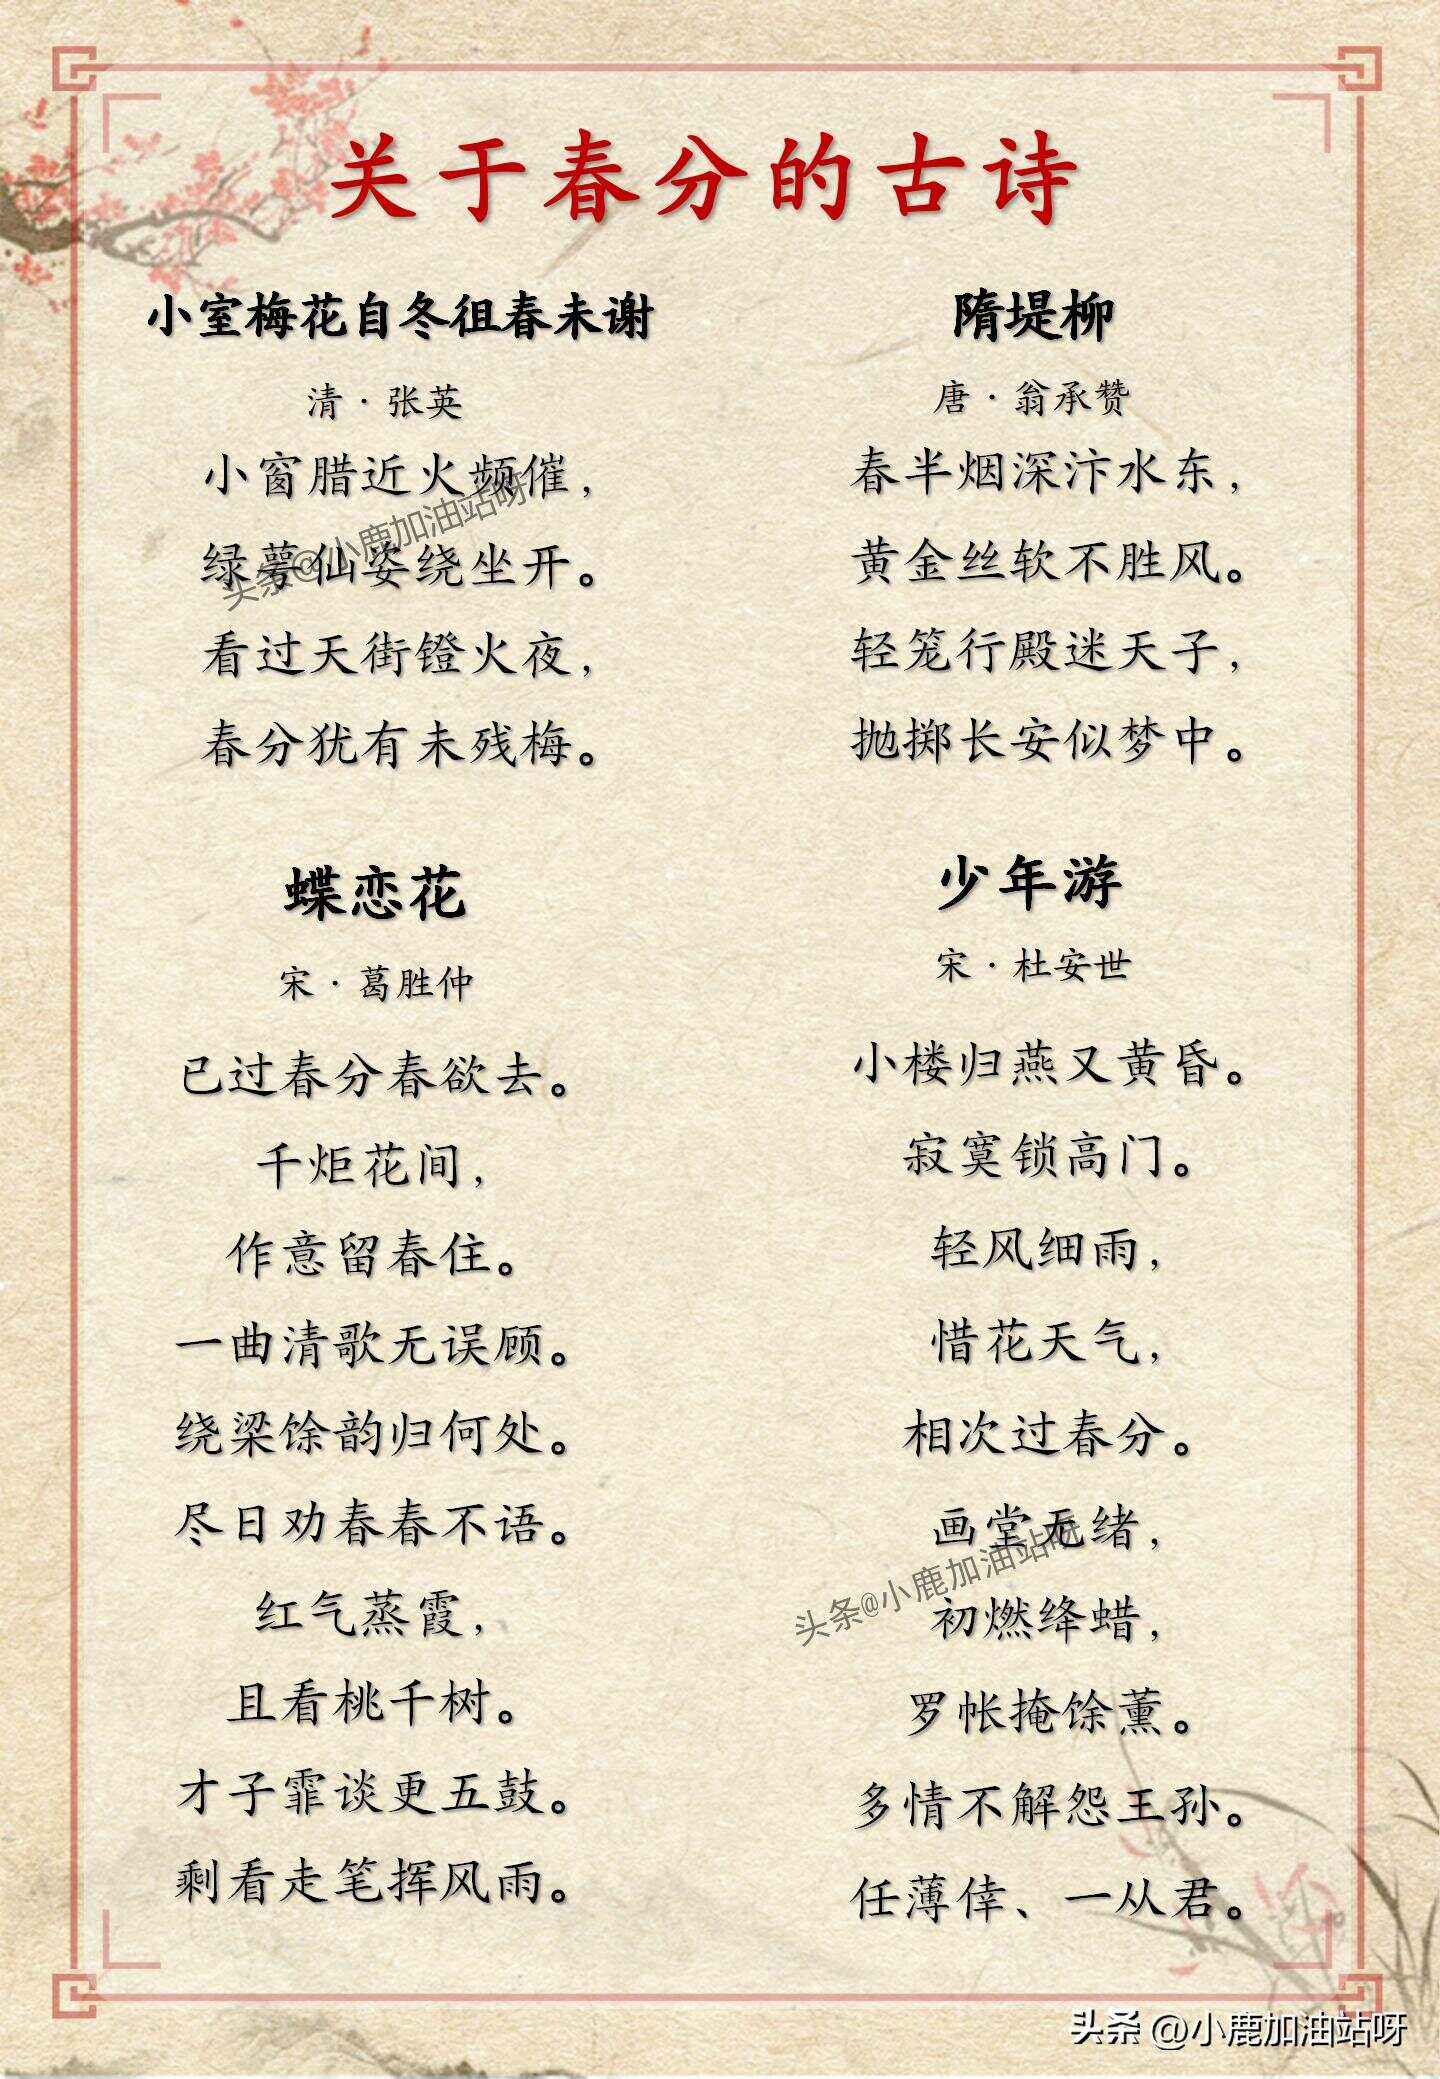 关于春分的古诗
小室梅花自冬徂春未谢
清·张英
小窗腊近火频催，
绿萼仙姿绕坐开。
看过天街镫火夜，
春分犹有未残梅。
隋堤柳
唐·翁承赞
春半烟深汴水东，
黄金丝软不胜风。
轻笼行殿迷天子，
抛掷长安似梦中。
蝶恋花
宋·葛胜仲
已过春分春欲去。
千炬花间，
作意留春住。
一曲清歌无误顾。
绕梁馀韵归何处。
尽日劝春春不语。
红气蒸霞，
且看桃千树。
才子霏谈更五鼓。
剩看走笔挥风雨。
少年游
宋·杜安世
小楼归燕又黄昏。
寂寞锁高门。
轻风细雨，
惜花天气，
相次过春分。
画堂无绪，
初燃绛蜡，
罗帐掩馀薰。
多情不解怨王孙。
任薄倖、一从君。
头条@小鹿加油站呀
头条@小鹿加油站呀
头条 @小鹿加油站呀